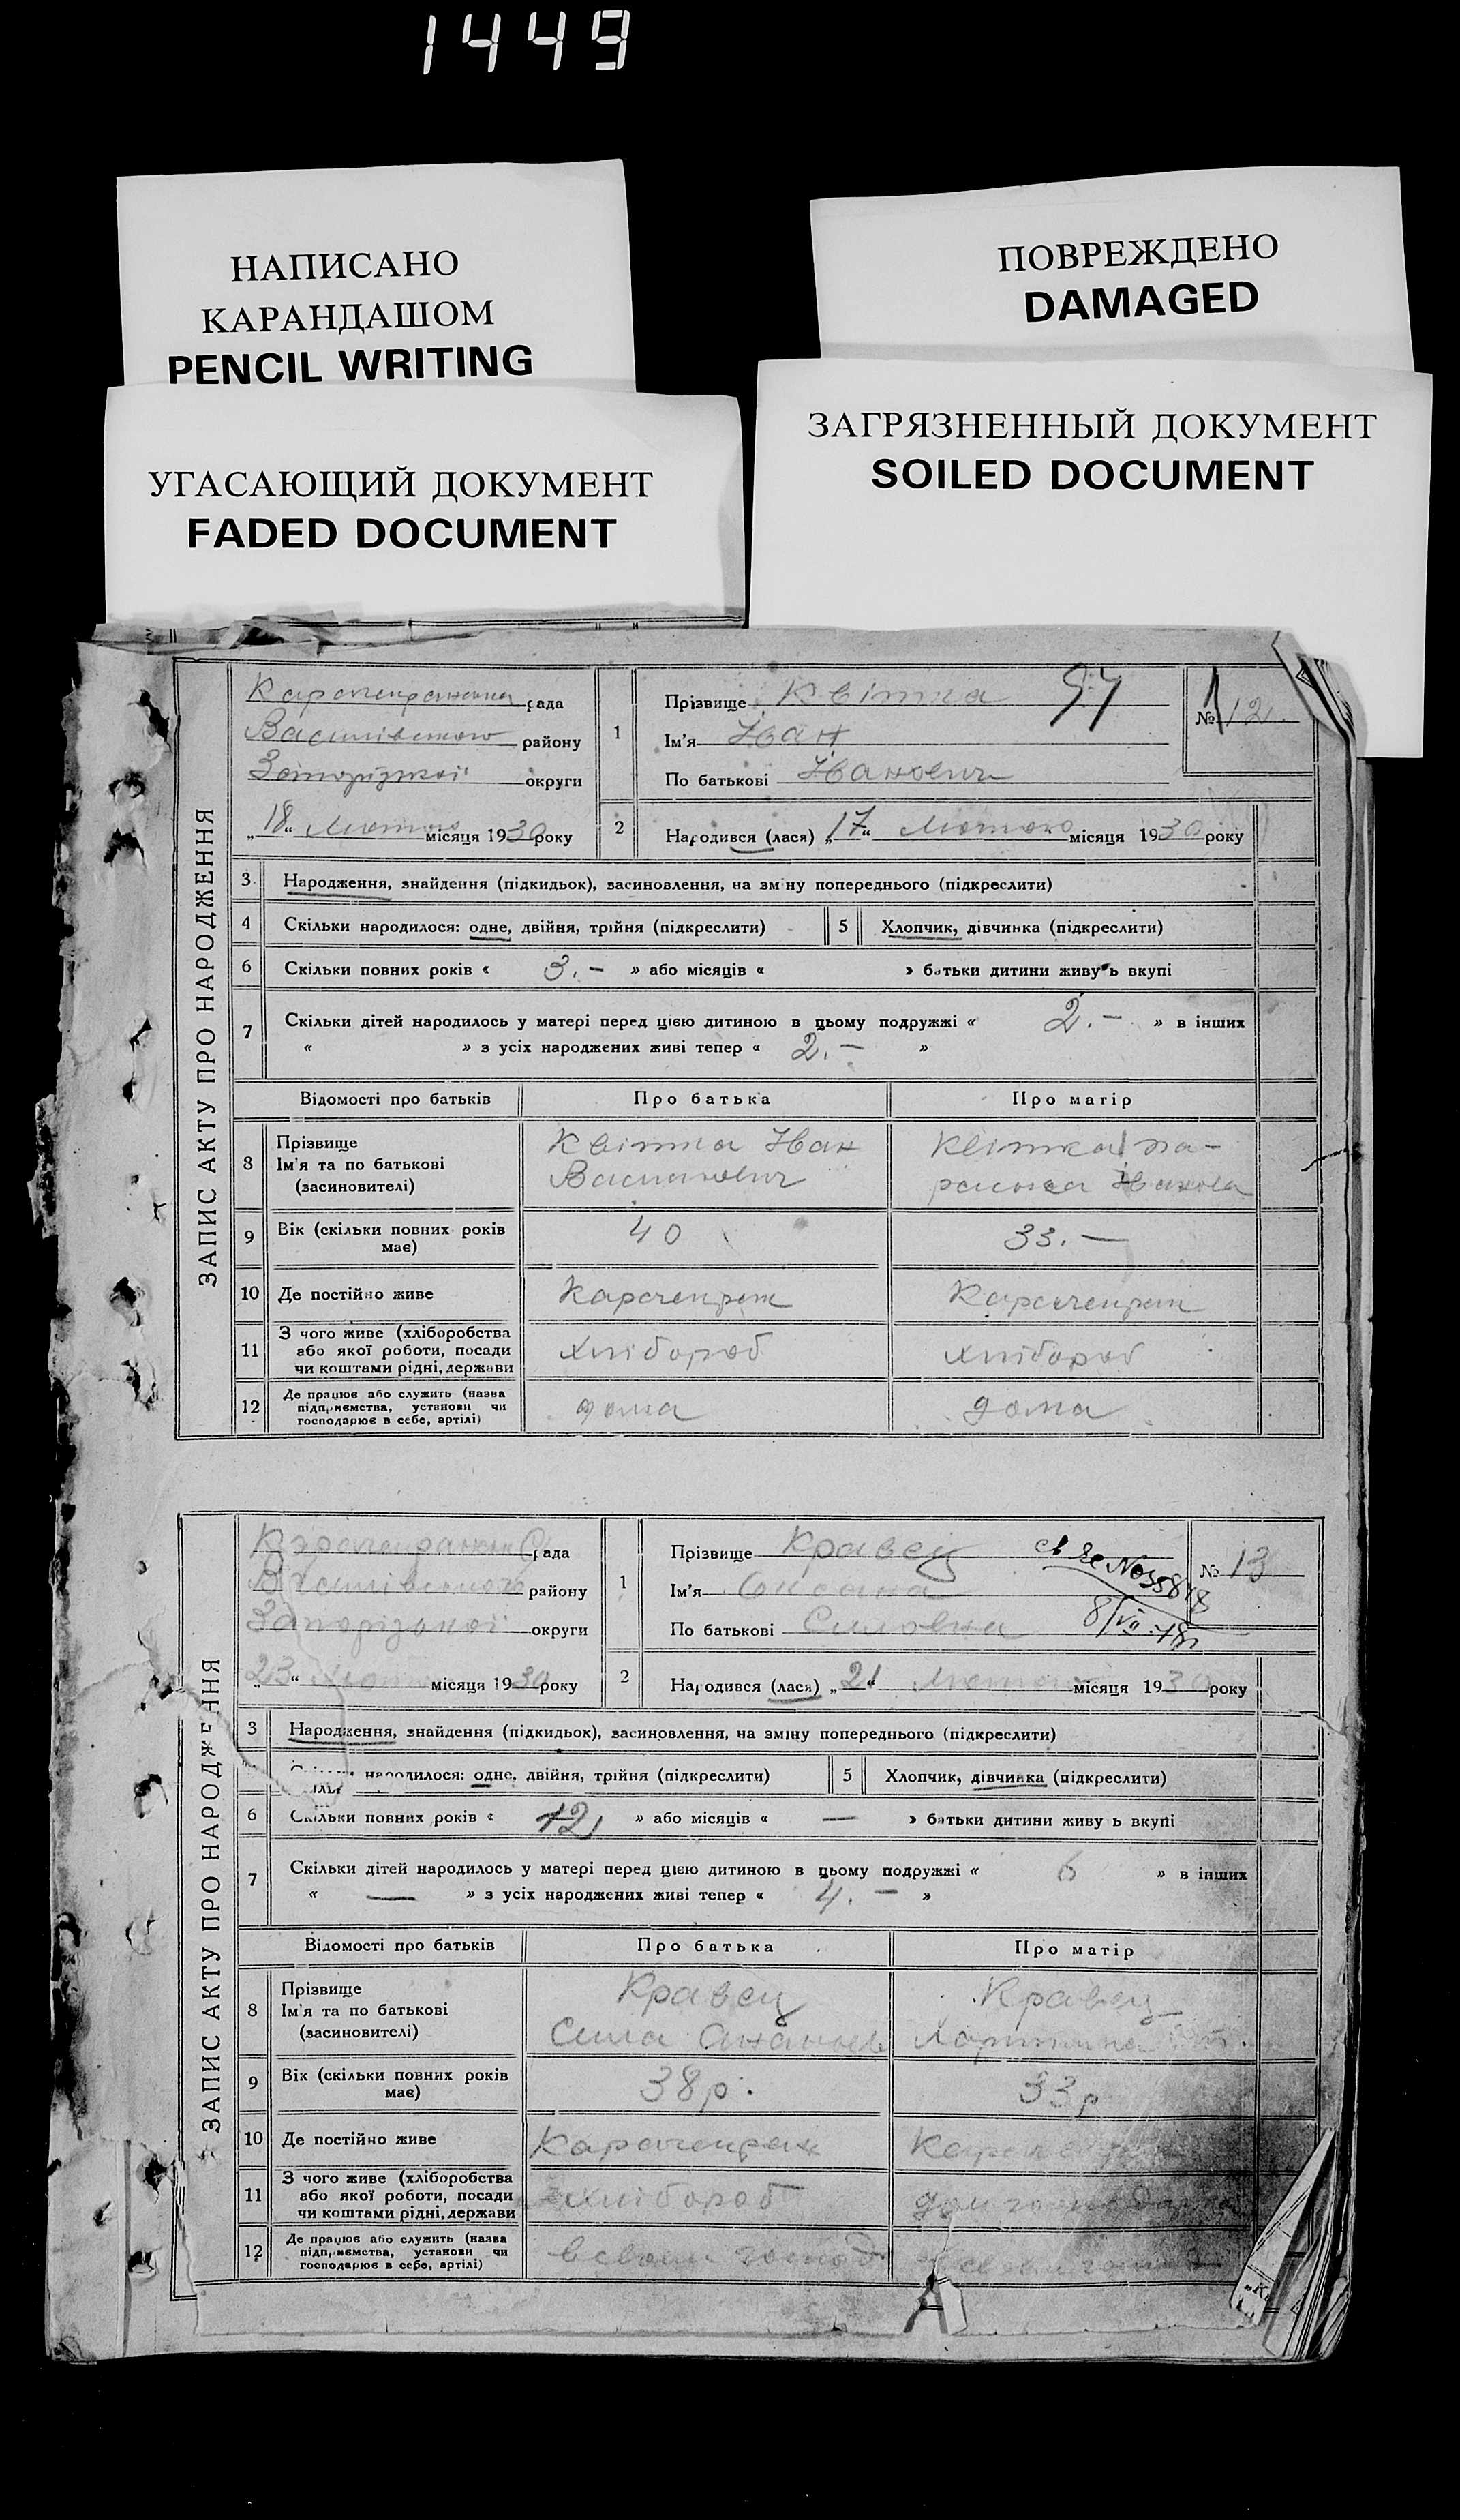 1449
НАПИСАНО
КАРАНДАШОМ
PENCIL WRITING
ПОВРЕЖДЕНО
DAMAGED
УГАСАЮЩИЙ ДОКУМЕНТ
FADED DOCUMENT
ЗАГРЯЗНЕННЫЙ ДОКУМЕНТ
SOILED DOCUMENT
ЗАПИС АКТУ ПРО НАРОДЖЕННЯ
рада
Василівського району
Запорізької округи
„18“ Лютого місяця 1930 року
1
Прізвище Квітка
97
Ім'я Іван
По батькові Іванович
№ 12.
2 Народився (лася) „17“ Лютого місяця 1930 року
3 Народження, знайдення (підкидьок), засиновлення, на зміну попереднього (підкреслити)
4 Скільки народилося: одне, двійня, трійня (підкреслити) 5 Хлопчик, дівчинка (підкреслити)
6 Скільки повних років « 3.- » або місяців « » батьки дитини живуть вкупі
7 Скільки дітей народилось у матері перед цією дитиною в цьому подружжі « 2.- » в інших
« » з усіх народжених живі тепер « 2.- »
Відомості про батьків Про батька Про матір
8 Прізвище
Ім'я та по батькові
(засновителі)
Квітка Іван
Василович
Квітка
9 Вік (скільки повних років
має)
40
33.-
10 Де постійно живе Карачекрак Карачекрак
11 З чого живе (хліборобства
або якої роботи, посади
чи коштами рідні, держави
хлібороб
хлібороб
12 Де працює або служить (назва
підприємства, установи чи
господарює в себе, артілі)
дома
дома
ЗАПИС АКТУ ПРО НАРОДЖЕННЯ
рада
Василівського району
Запорізької округи
„23“ місяця 1930 року
1
Прізвище Кравец
Ім'я
По батькові Силовна
8/VII
№ 13
2 Народився (лася) „21“ Лютого місяця 1930 року
3 Народження, знайдення (підкидьок), засиновлення, на зміну попереднього (підкреслити)
народилося: одне, двійня, трійня (підкреслити) 5 Хлопчик, дівчинка (підкреслити)
6 Скільки повних років « 12 » або місяців « — » батьки дитини живуть вкупі
7 Скільки дітей народилось у матері перед цією дитиною в цьому подружжі « 6 » в інших
« — » з усіх народжених живі тепер « 4.- »
Відомості про батьків Про батька Про матір
8 Прізвище
Ім'я та по батькові
(засиновителі)
Кравец
Сила Ананьев
Кравец
9 Вік (скільки повних років
має)
38 р.
33 р
10 Де постійно живе Карачекрак
11 З чого живе (хліборобства
або якої роботи, посади
чи коштами рідні, держави
хлібороб
12 Де працює або служить (назва
підприємства, установи чи
господарює в себе, артілі)